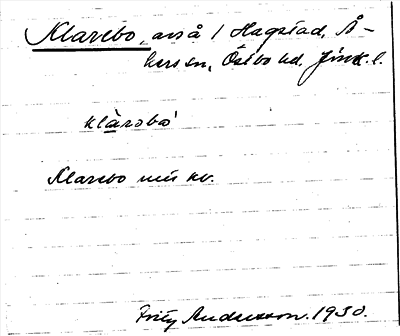 Klarebo, avs å 1 Hagstad, Å-
kers sn, Östbo hd. Jönk. l.
klàrəbó
Klarebo mis kv.
Fritz Andersson. 1930.